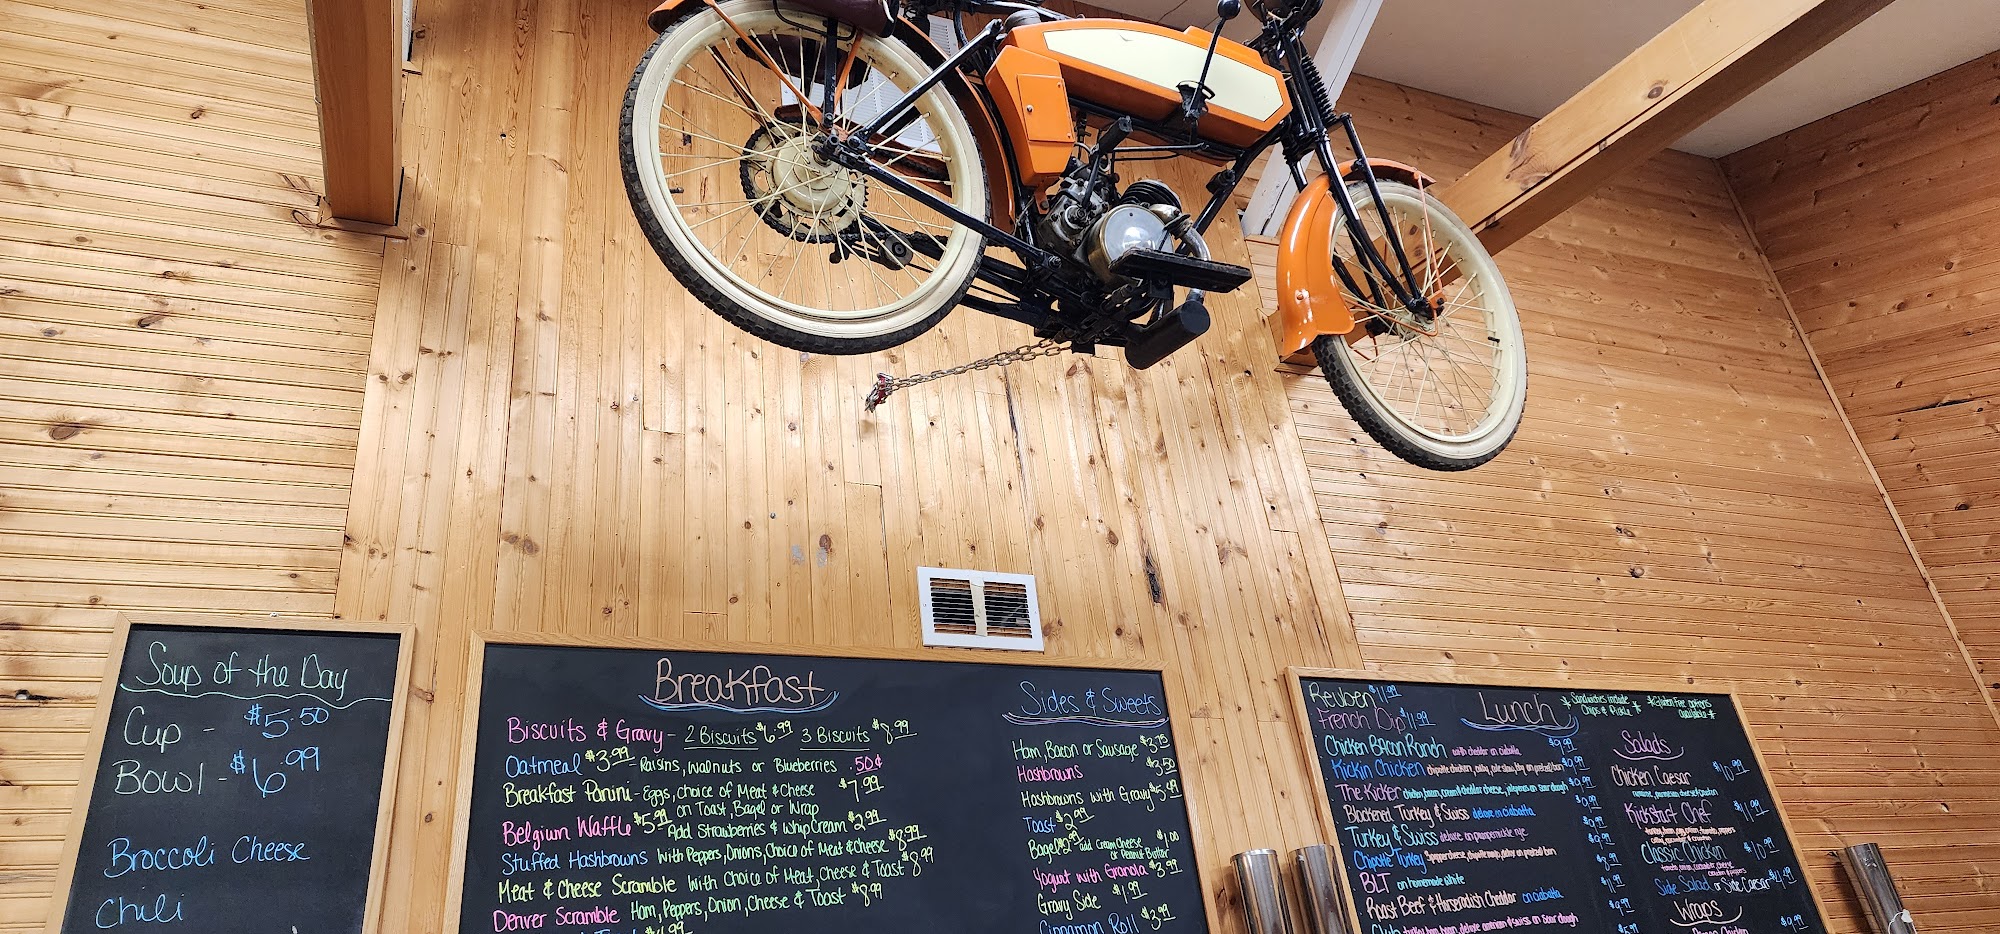 Soup of the Day
Cup - $5.50
Bowl - $6.99
Broccoli Cheese
Chili
Breakfast
Biscuits & Gravy - 2 Biscuits $6.99 3 Biscuits $8.99
Oatmeal $3.99 - Raisins, walnuts or Blueberries .50¢
Breakfast Panini - Eggs, choice of Meat & Cheese $7.99
on Toast, Bagel or Wrap
Belgium Waffle $5.99 Add Strawberries & Whip Cream $2.99
Stuffed Hashbrowns with Peppers, Onions, Choice of Meat & Cheese $8.99
Meat & Cheese Scramble with Choice of Meat, Cheese & Toast $8.99
Denver Scramble Ham, Peppers, Onion, Cheese & Toast $8.99
Sides & Sweets
Ham, Bacon or Sausage $3.75
Hashbrowns $3.50
Hashbrowns with Gravy $5.99
Toast $2.99
Bagel $2.95 add Cream Cheese $1.00
or Peanut Butter
Yogurt with Granola $3.99
Gravy Side $1.99
Cinnamon Roll $3.99
Lunch
Sandwiches include
Chips & Pickle
Gluten Free options
available
Reuben $11.99
French Dip $11.99
Chicken Bacon Ranch with cheddar on ciabatta $9.99
Kickin Chicken chipotle chicken, on pretzel bun $9.99
The Kicker chicken, bacon, cream & cheddar cheese, jalapenos on sour dough $9.99
Blackened Turkey & Swiss deluxe on ciabatta $9.99
Turkey & Swiss deluxe on pumpernickle rye
Chipotle Turkey Pepper cheese, chipotle mayo, on pretzel bun
BLT on homemade white
Roast Beef & Horseradish Cheddar on ciabatta
Club turkey, ham, bacon, deluxe american & swiss on sour dough
Salads
Chicken Caesar $10.99
romaine, parmesan cheese & crouton
Kickstart Chef $11.99
Classic Chicken $10.99
Side Salad or Side Caesar $4.99
Wraps